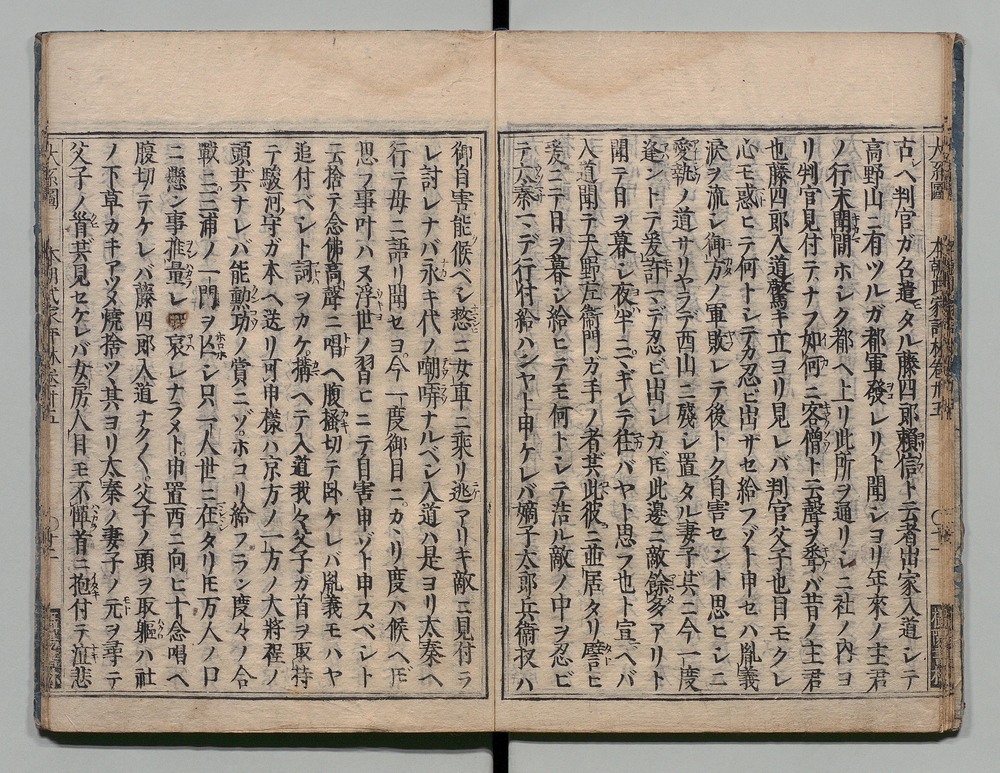 古ヘ判官ガ名遣モタル藤四郎頼信ト云者出家入道シテ
高野山ニ有ツルガ都軍發レリト聞シヨリ年來ノ主君
ノ行末聞ホシク都ヘ上リ此所ヲ通リシニ社ノ内ヨ
リ判官見付テ、ナフ如何ニ客僧ト云聲ヲ聞バ昔ノ主君
也藤四郎入道驚キ立ヨリ見レバ判官父子也目モクレ
心モ惑ヒテ何トシテカ忍ビ出サセ給フゾト申セハ胤義
涙ヲ流シ御方ノ軍敗レテ後トク自害セント思ヒシニ
愛執ノ道サリヤラデ西山ニ殘シ置タル妻子共ニ今一度
逢ントテ爰許マデ忍ビ出シカ𪜈此邊ニ敵餘多アリト
聞テ日ヲ暮シ夜半ニマギレテ往バヤト思フ也ト宣ヘバ
入道聞テ天野左衞門ガ手ノ者共此彼ニ並居タリ譬ヒ
爰ニテ日ヲ暮シ給ヒテモ何トシテ浩ル敵ノ中ヲ忍ビ
テ太秦マデ行付給ハンヤト申ケレバ嫡子太郎兵衞扨ハ
御自害能候ベシ憖ニ女車ニ乘リ逃マリキ敵ニ見付ラ
レ討レナバ永キ代ノ嘲哢ナルベシ入道ハ是ヨリ太秦ヘ
行テ母ニ語リ聞セヨ今一度御目ニカヽリ度ハ候ヘ𪜈
思フ事叶ハヌ浮世ノ習ヒニテ自害申ゾト申スベシト
云捨テ念佛高聲ニ唱ヘ腹掻切テ臥ケレバ胤義モハヤ
追付ベシト詞ヲカケ構ヘテ入道我々父子ガ首ヲ取持
テ駿河守ガ本ヘ送リ可申樣ハ京方ノ一方ノ大將程ノ
頭共ナレバ能勲功ノ賞ニゾホコリ給フラン度々ノ合
戰ニ三浦ノ一門ヲ亡シ只一人世ニ在タリ𪜈万人ノ口
ニ懸ン事推量レ哀レナラメト申置西ニ向ヒ十念唱ヘ
腹切テケレバ藤四郎入道ナク〱父子ノ頭ヲ取軀ハ社
ノ下草カキアツメ燒捨ツ其ヨリ太秦ノ妻子ノ元ヲ尋テ
父子ノ首共見セケレバ女房人目モ不憚首ニ抱付テ泣悲